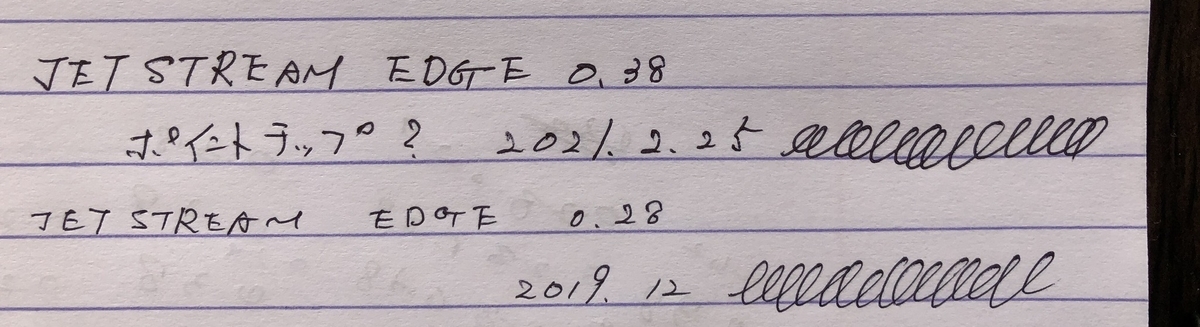 JETSTREAM EDGE 0.38
ポイントチップ? 2021.2.25
JETSTREAM EDGE 0.28
2019.12